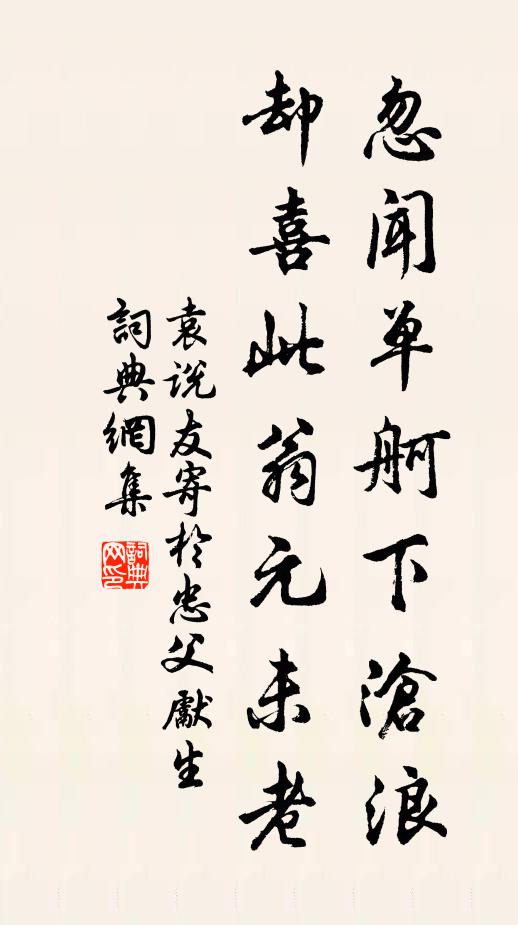 忽聞單舸下滄浪
却喜此翁元未老
袁說友寄於忠父獻生
詞典網集
詞典網印